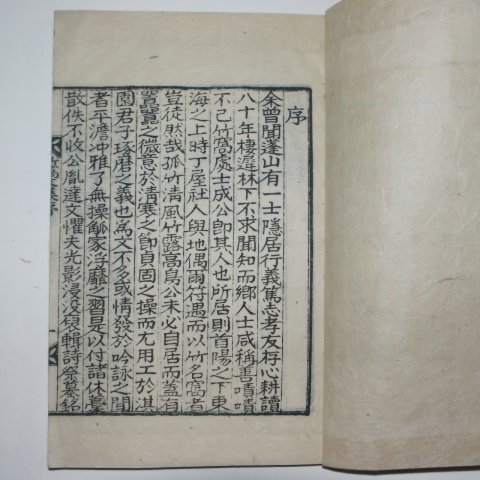 序
余曾聞蓬山有一士隱居行義篤志孝友存心耕讀
八十年棲遲林下不求聞知而鄕人士咸稱善嘖嘖
不已竹窩處士成公卽其人也所居則首陽之下東
海之上時丁屋社人與地偶爾符遇而以竹名窩者
豈徒然哉孤竹淸風竹露高鳥公未必自居而蓋有
囂囂之微意於淸寒之節貞固之操而尤用工於淇
園君子琢磨之義也爲文不多或情發於吟詠之間
者平澹冲雅了無操觚家浮靡之習是以付諸休藁
散佚不收公胤達文懼夫光影浸沒裒輯詩祭墓銘